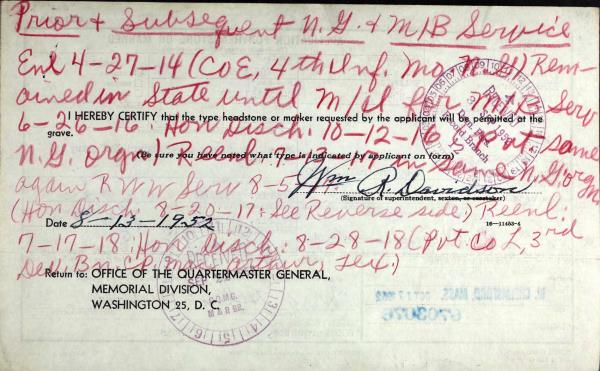 Prior & Subsequent N.G. & M/B Service
Enl 4-27-14 (Co E, 4th Inf. Mo. N.G.) Rem-
ained in State until M/I for M/B Serv
I HEREBY CERTIFY that the type headstone or marker requested by the applicant will be permitted at the
grave.
6-26-16: Hon Disch: 10-12-16
at same
(Be sure you have noted what type is indicated by applicant on form)
N.G. orgn)
in same N.G. org
again
WW Serv 8-5
Wm R. Davidson
(Signature of superintendent, sexton, or caretaker)
(Hon Disch: 8-20-17: See Reverse side) Reenl:
Date 8-13-1952
16-11453-4
7-17-18: Hon Disch: 8-28-18 (Pvt. Co L, 3rd
Dev. Bn, Cp. MacArthur, Tex.)
Return to: OFFICE OF THE QUARTERMASTER GENERAL,
MEMORIAL DIVISION,
WASHINGTON 25, D. C.
RECEIVED
6703076